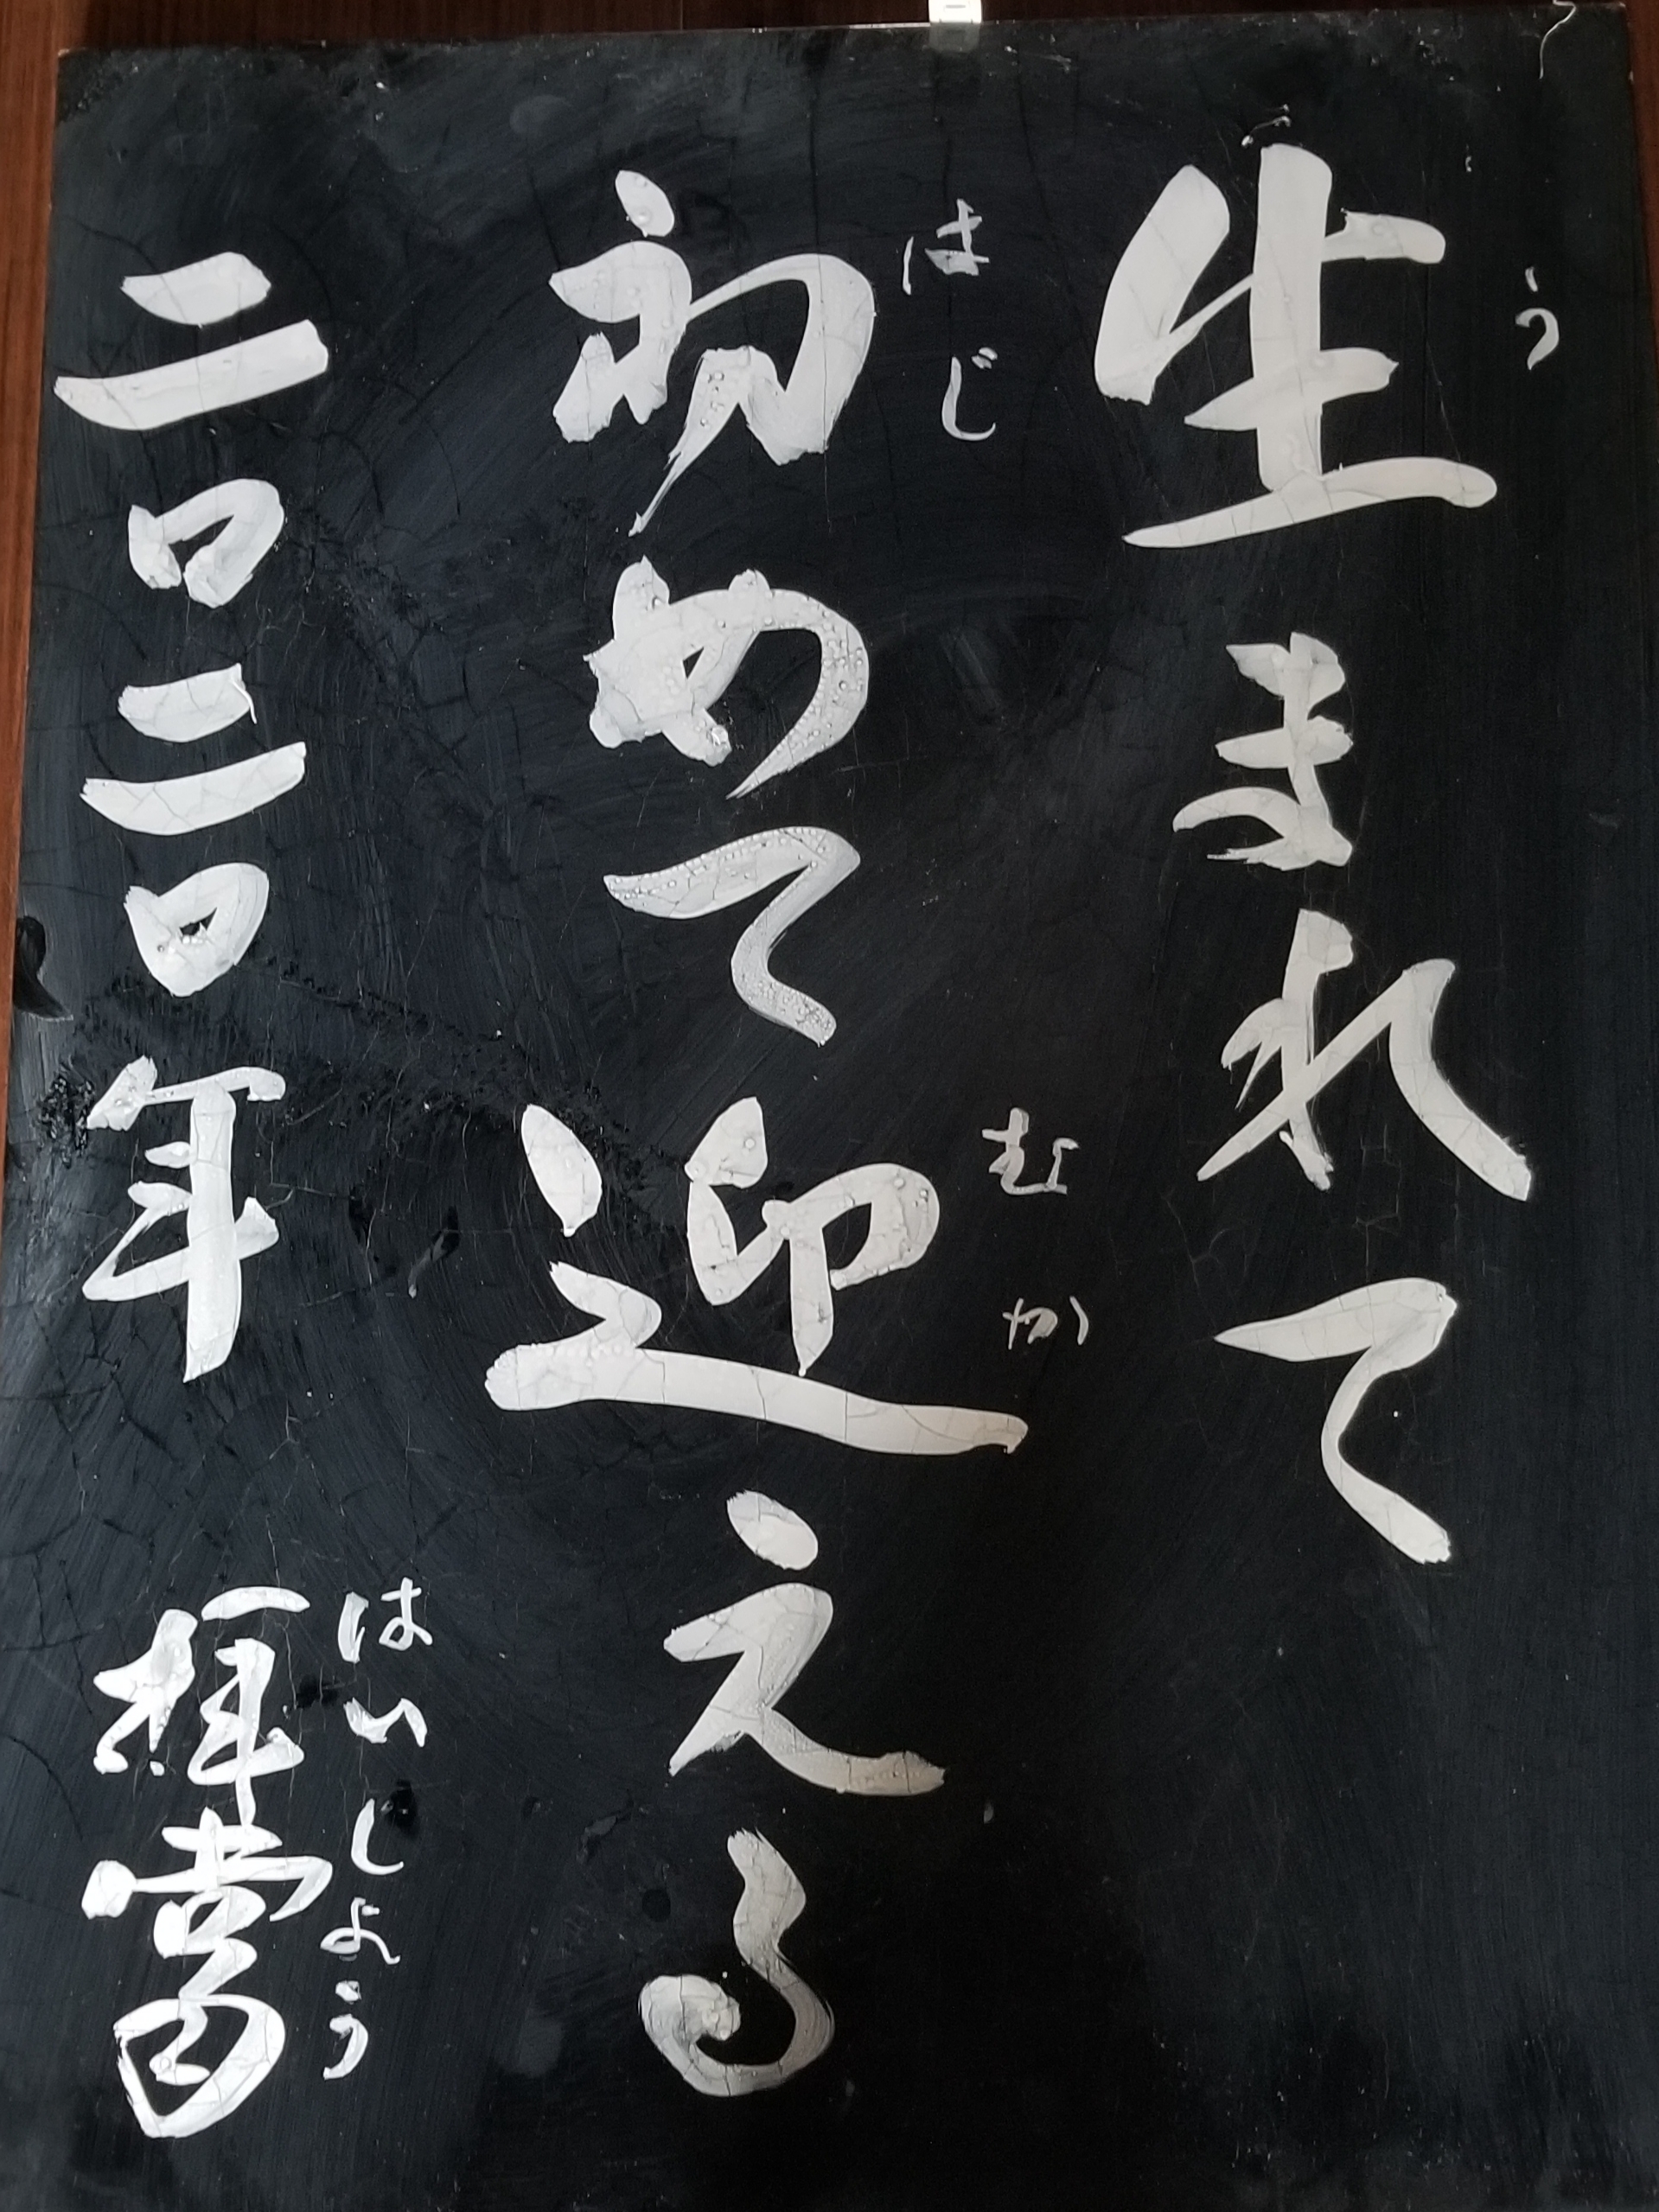 う
生まれて
はじ　むか
初めて迎える
はいしょう
二〇二〇年　拝